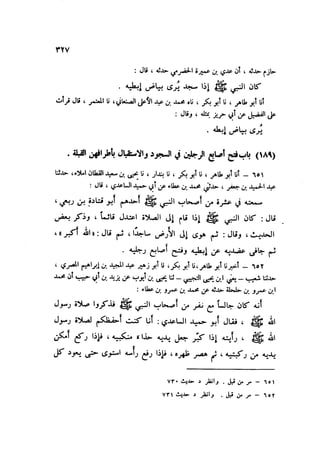 ٣٢٧
حازم حدثه ، أن عدي بن عميرة الحضرمي حدثه ، قال :
كان النبي ﷺ إذا سجد يُرى بياض إبطيه .
أنا أبو طاهر ، نا أبو بكر ، نا محمد بن عبد الأعلى الصنعاني ، نا المعتمر ، قال قرأت
على الفضيل عن أبي حريز بمثله ، وقال :
يُرى بياض إبطه .
(١٨٩) باب فتح أصابع الرجلين في السجود والاستقبال بأطرافهن القبلة .
٦٥١ - أنا أبو طاهر ، نا أبو بكر ، نا بندار ، نا يحيى بن سعيد القطان إملاء ، حدثنا
عبد الحميد بن جعفر ، حدثني محمد بن عطاء عن أبي حميد الساعدي ، قال :
سمعته في عشرة من أصحاب النبي ﷺ أحدهم أبو قتادة بن ربعي ،
قال : كان النبي ﷺ إذا قام إلى الصلاة اعتدل قائماً ، وذكر بعض
الحديث ، وقال : ثم هوى إلى الأرض ساجداً ، ثم قال : «الله أكبر» ،
ثم جافى عضديه عن إبطيه وفتح أصابع رجليه .
٦٥٢ - أخبرني أبو طاهر ، نا أبو بكر ، نا أبو زهير عبد المجيد بن إبراهيم المصري ،
حدثنا شعيب - يعني ابن يحيى التجيبي - نا يحيى بن أيوب عن يزيد بن أبي حبيب أن محمد
ابن عمرو بن حلحلة حدثه عن محمد بن عمرو بن عطاء :
أنه كان جالساً مع نفر من أصحاب النبي ﷺ فذكروا صلاة رسول
الله ﷺ ، فقال أبو حميد الساعدي : أنا كنت أحفظكم لصلاة رسول
الله ﷺ ، رأيته إذا كبّر جعل يديه حذاء منكبيه ، فإذا ركع أمكن
يديه من ركبتيه ، ثم هصر ظهره ، فإذا رفع رأسه استوى حتى يعود كل
٦٥١ - مر من قبل . وانظر د حديث ٧٣٠
٦٥٢ - مر من قبل . وانظر د حديث ٧٣١